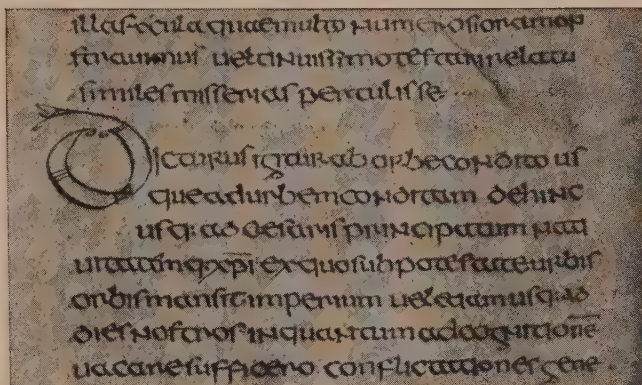 illa secula quae multo numerosiora mon
strauimus uel
similes misserias perculisse
Dicturus igitur ab orbe condito us
que ad urbem conditam dehinc
usq: ad cesaris principatum nati
uitatemq: xp̄i ex quo sub potestate urbis
orbis mansit imperium uel etiam usq: ad
dies nostros in quantum ad cognitionē
uacare sufficero conflictationes gene